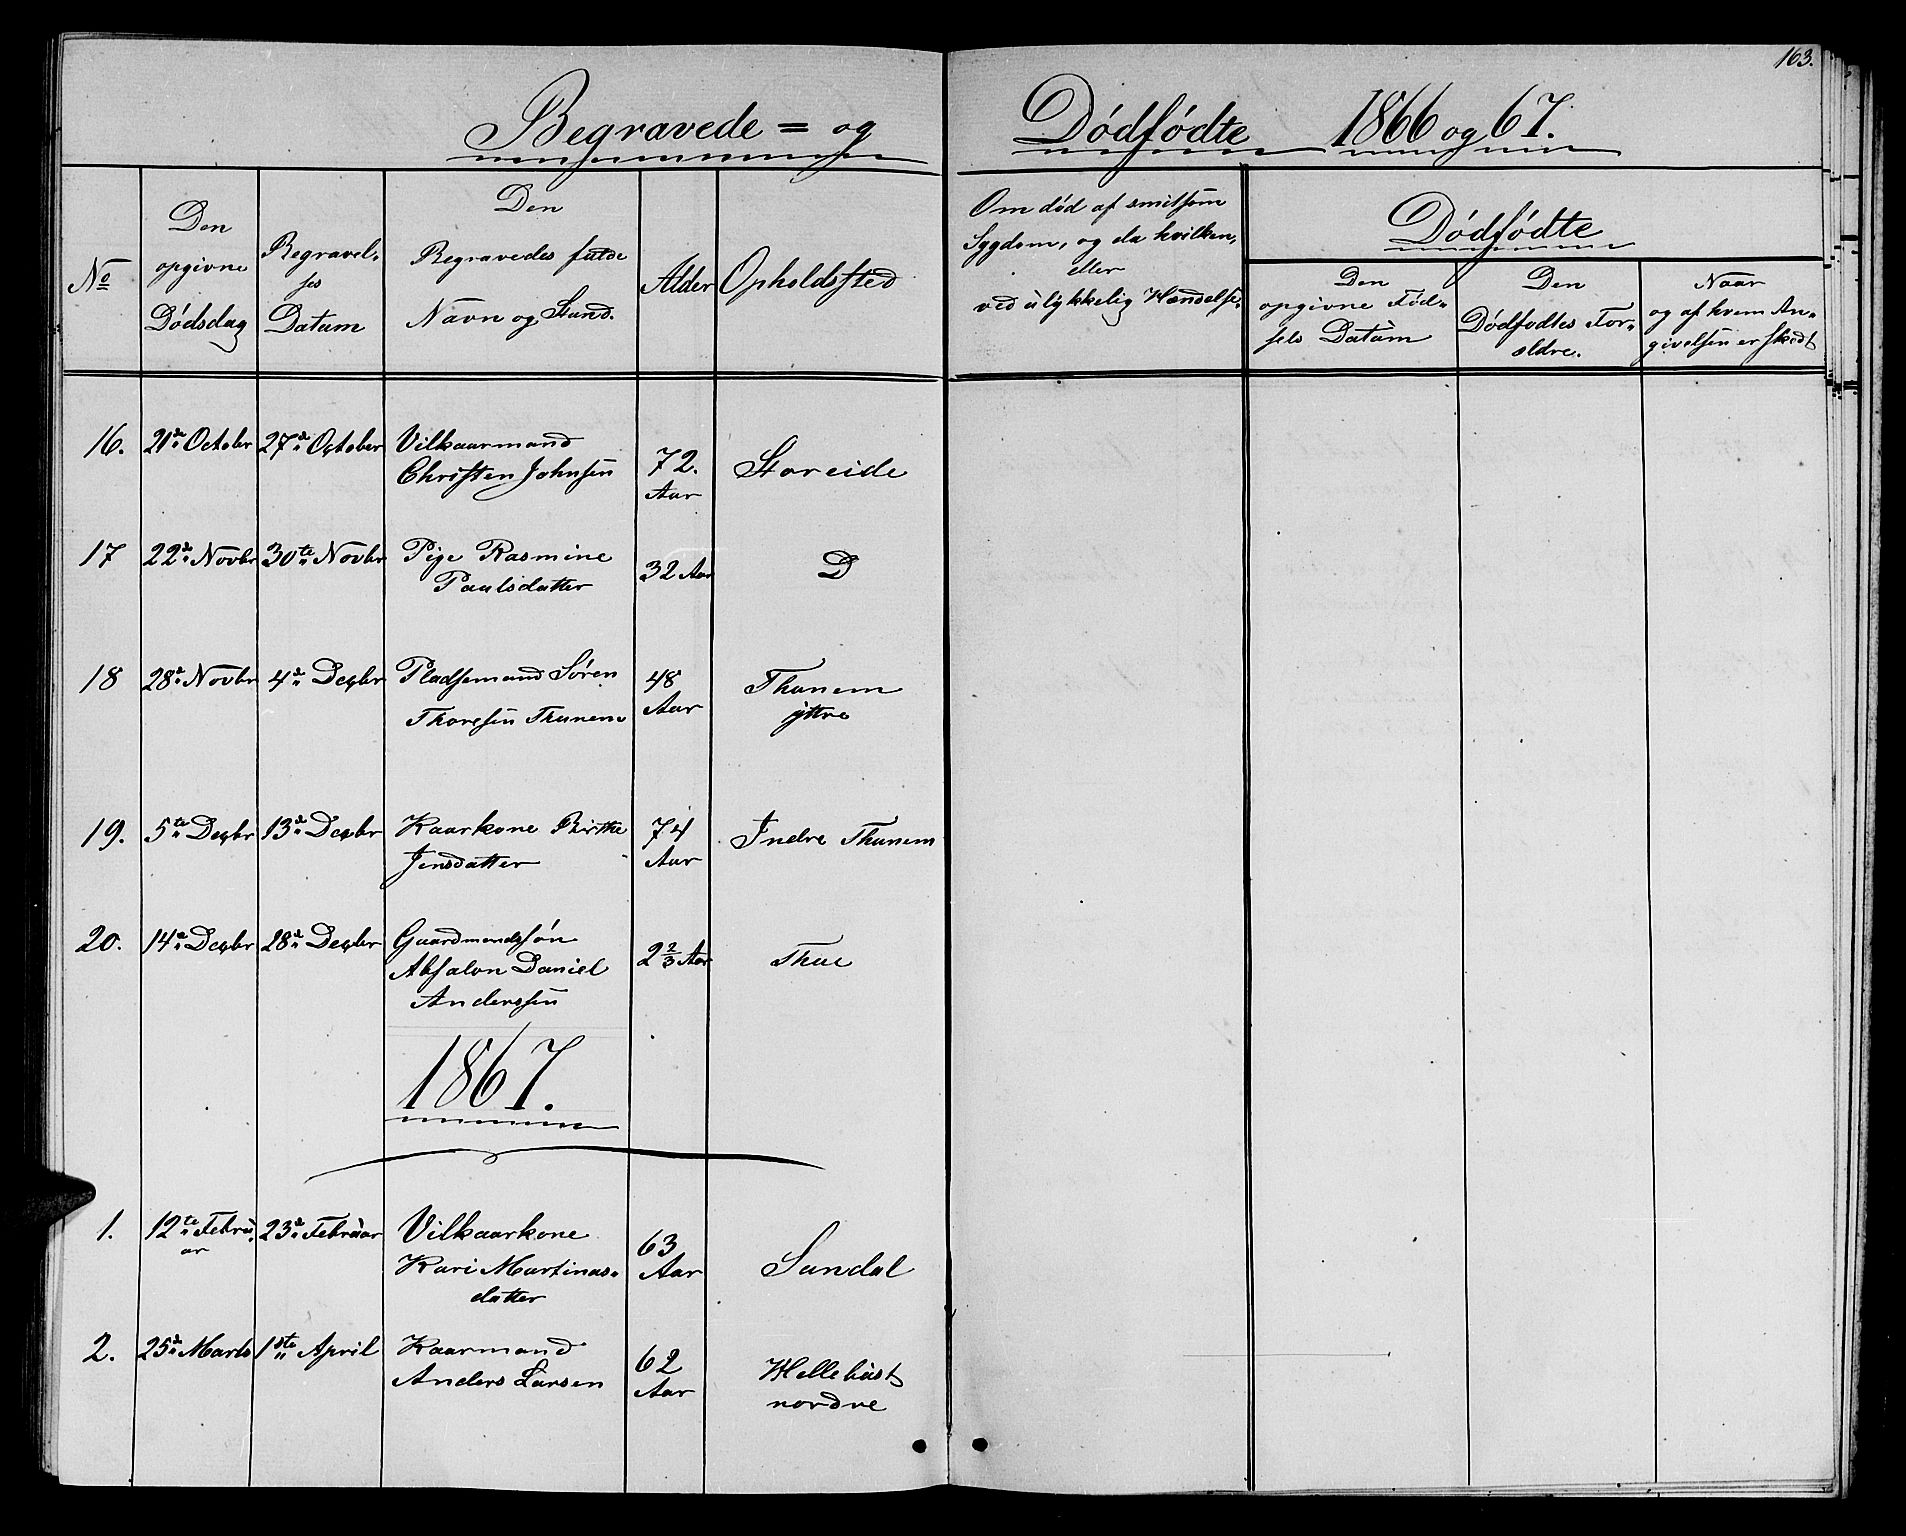 163.
Begravede = og Dödfödte 1866 og 67.
No
Den opgivne Dödsdag
Begravel-
ses
Datum
Den
Begravedes fulde
Navn og Stand.
Alder
Opholdssted
Om död af smitsom
Sygdom, og da hvilken,
eller
ved ulykkelig Hændelse.
Dödfödte
Den
opgivne Föd-
sels Datum
Den
Dödfödtes For-
ældre.
Naar
og af hvem An-
givelsen er skedt
16. 21de Octobr 27de October Vilkaarmand
Christen Johnsen 72. Aar Storeide
17 22de Novbr 30te Novbr Pige Rasmine
Paulsdatter 32 Aar D
18 28de Novbr 4de Decbr Pladsemand Sören
Thoresen Thunem 48 Aar Thunem
ÿttre
19. 5te Decbr 13de Decbr Kaarkone Birthe
Jensdatter 74 Aar Indre Thunem
20. 14de Decbr 28de Decbr Gaardmandssön
Absalon Daniel
Anderssen 2 2/3 Aar Thue
1867.
1. 12te Febru-
ar 23de Februar Vilkaarkone
Kari Martinus-
datter 63 Aar Sandal
2. 25de Marts 1ste April Kaarmand
Anders Larsen 62 Aar Hellebust
nordre